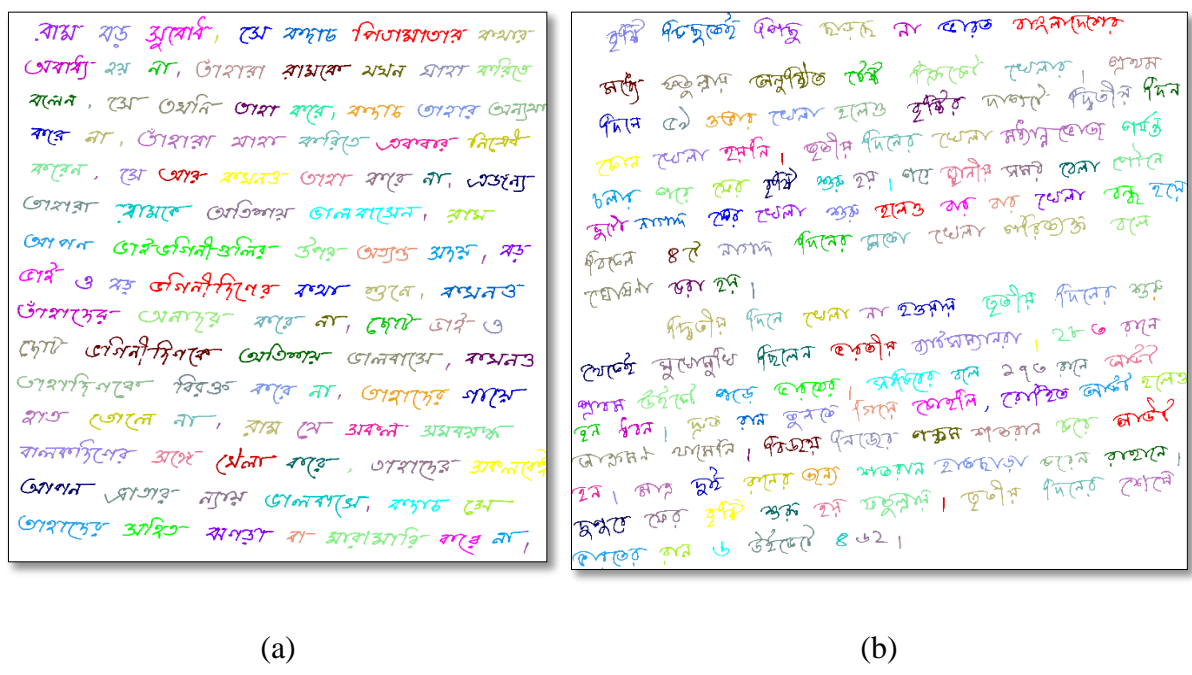 রাম বড় সুবোধ, সে কদাচ পিতামাতার কথার
অবাধ্য হয় না, তাঁহারা রামকে যখন যাহা করিতে
বলেন, সে তখনি তাহা করে, কদাচ তাহার অন্যথা
করে না, তাঁহারা যাহা করিতে একবার নিষেধ
করেন, সে আর কখনও তাহা করে না, এজন্য
তাহারা রামকে অতিশয় ভালবাসেন, রাম
আপন ভাইভগিনীগুলির উপর অত্যন্ত সদয়, বড়
ভাই ও বড় ভগিনীদিগের কথা শুনে, কখনও
তাঁহাদের অনাদর করে না, ছোট ভাই ও
ছোট ভগিনীদিগকে অতিশয় ভালবাসে, কখনও
তাহাদিগকে বিরক্ত করে না, তাহাদের গায়ে
হাত তোলে না, রাম যে সকল সমবয়স্ক
বালকদিগের সঙ্গে খেলা করে, তাহাদের সকলকেই
আপন ভ্রাতার ন্যায় ভালবাসে, কদাচ সে
তাহাদের সহিত ঝগড়া বা মারামারি করে না,
(a)
বৃষ্টি কিছুতেই পিছু ছাড়ছে না ভারত বাংলাদেশের
মধ্যে ফতুল্লায় অনুষ্ঠিত টেস্ট ক্রিকেট খেলার। প্রথম
দিনে ৫৯ ওভার খেলা হলেও বৃষ্টির দাপটে দ্বিতীয় দিন
কোন খেলা হয়নি। তৃতীয় দিনের খেলা মধ্যাহ্নভোজ পর্যন্ত
চলার পরে ফের বৃষ্টি শুরু হয়। পরে স্থানীয় সময় বেলা পৌনে
দুটো নাগাদ ফের খেলা শুরু হলেও বার বার খেলা বন্ধ হয়ে
বিকেল ৪টে নাগাদ দিনের মতো খেলা পরিত্যক্ত বলে
ঘোষণা করা হয়।
দ্বিতীয় দিনে খেলা না হওয়ায় তৃতীয় দিনের শুরু
থেকেই মুখোমুখি ছিলেন ভারতীয় ব্যাটসম্যানরা। ২৮৩ রানে
প্রথম উইকেট পড়ে ভারতের। সতীর্থের বলে ১৭৩ রানে আউট
হন ধবন। দ্রুত রান তুলতে গিলে কোহলি, রোহিত আউট হলেও
আক্রমণ থামেনি। বিজয় নিজের পঞ্চম শতরান করে আউট
হন। মাত্র দুই রানের জন্য শতরান হাতছাড়া করেন রাহানে।
দুপুরে ফের বৃষ্টি শুরু হয় ফতুল্লায়। তৃতীয় দিনের শেষে
ভারতের রান ৬ উইকেটে ৪৬২।
(b)